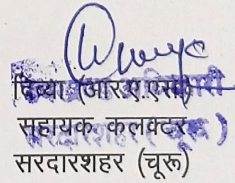 दिव्या (आर.ए.एस)
सहायक कलक्टर
सरदारशहर (चूरू)